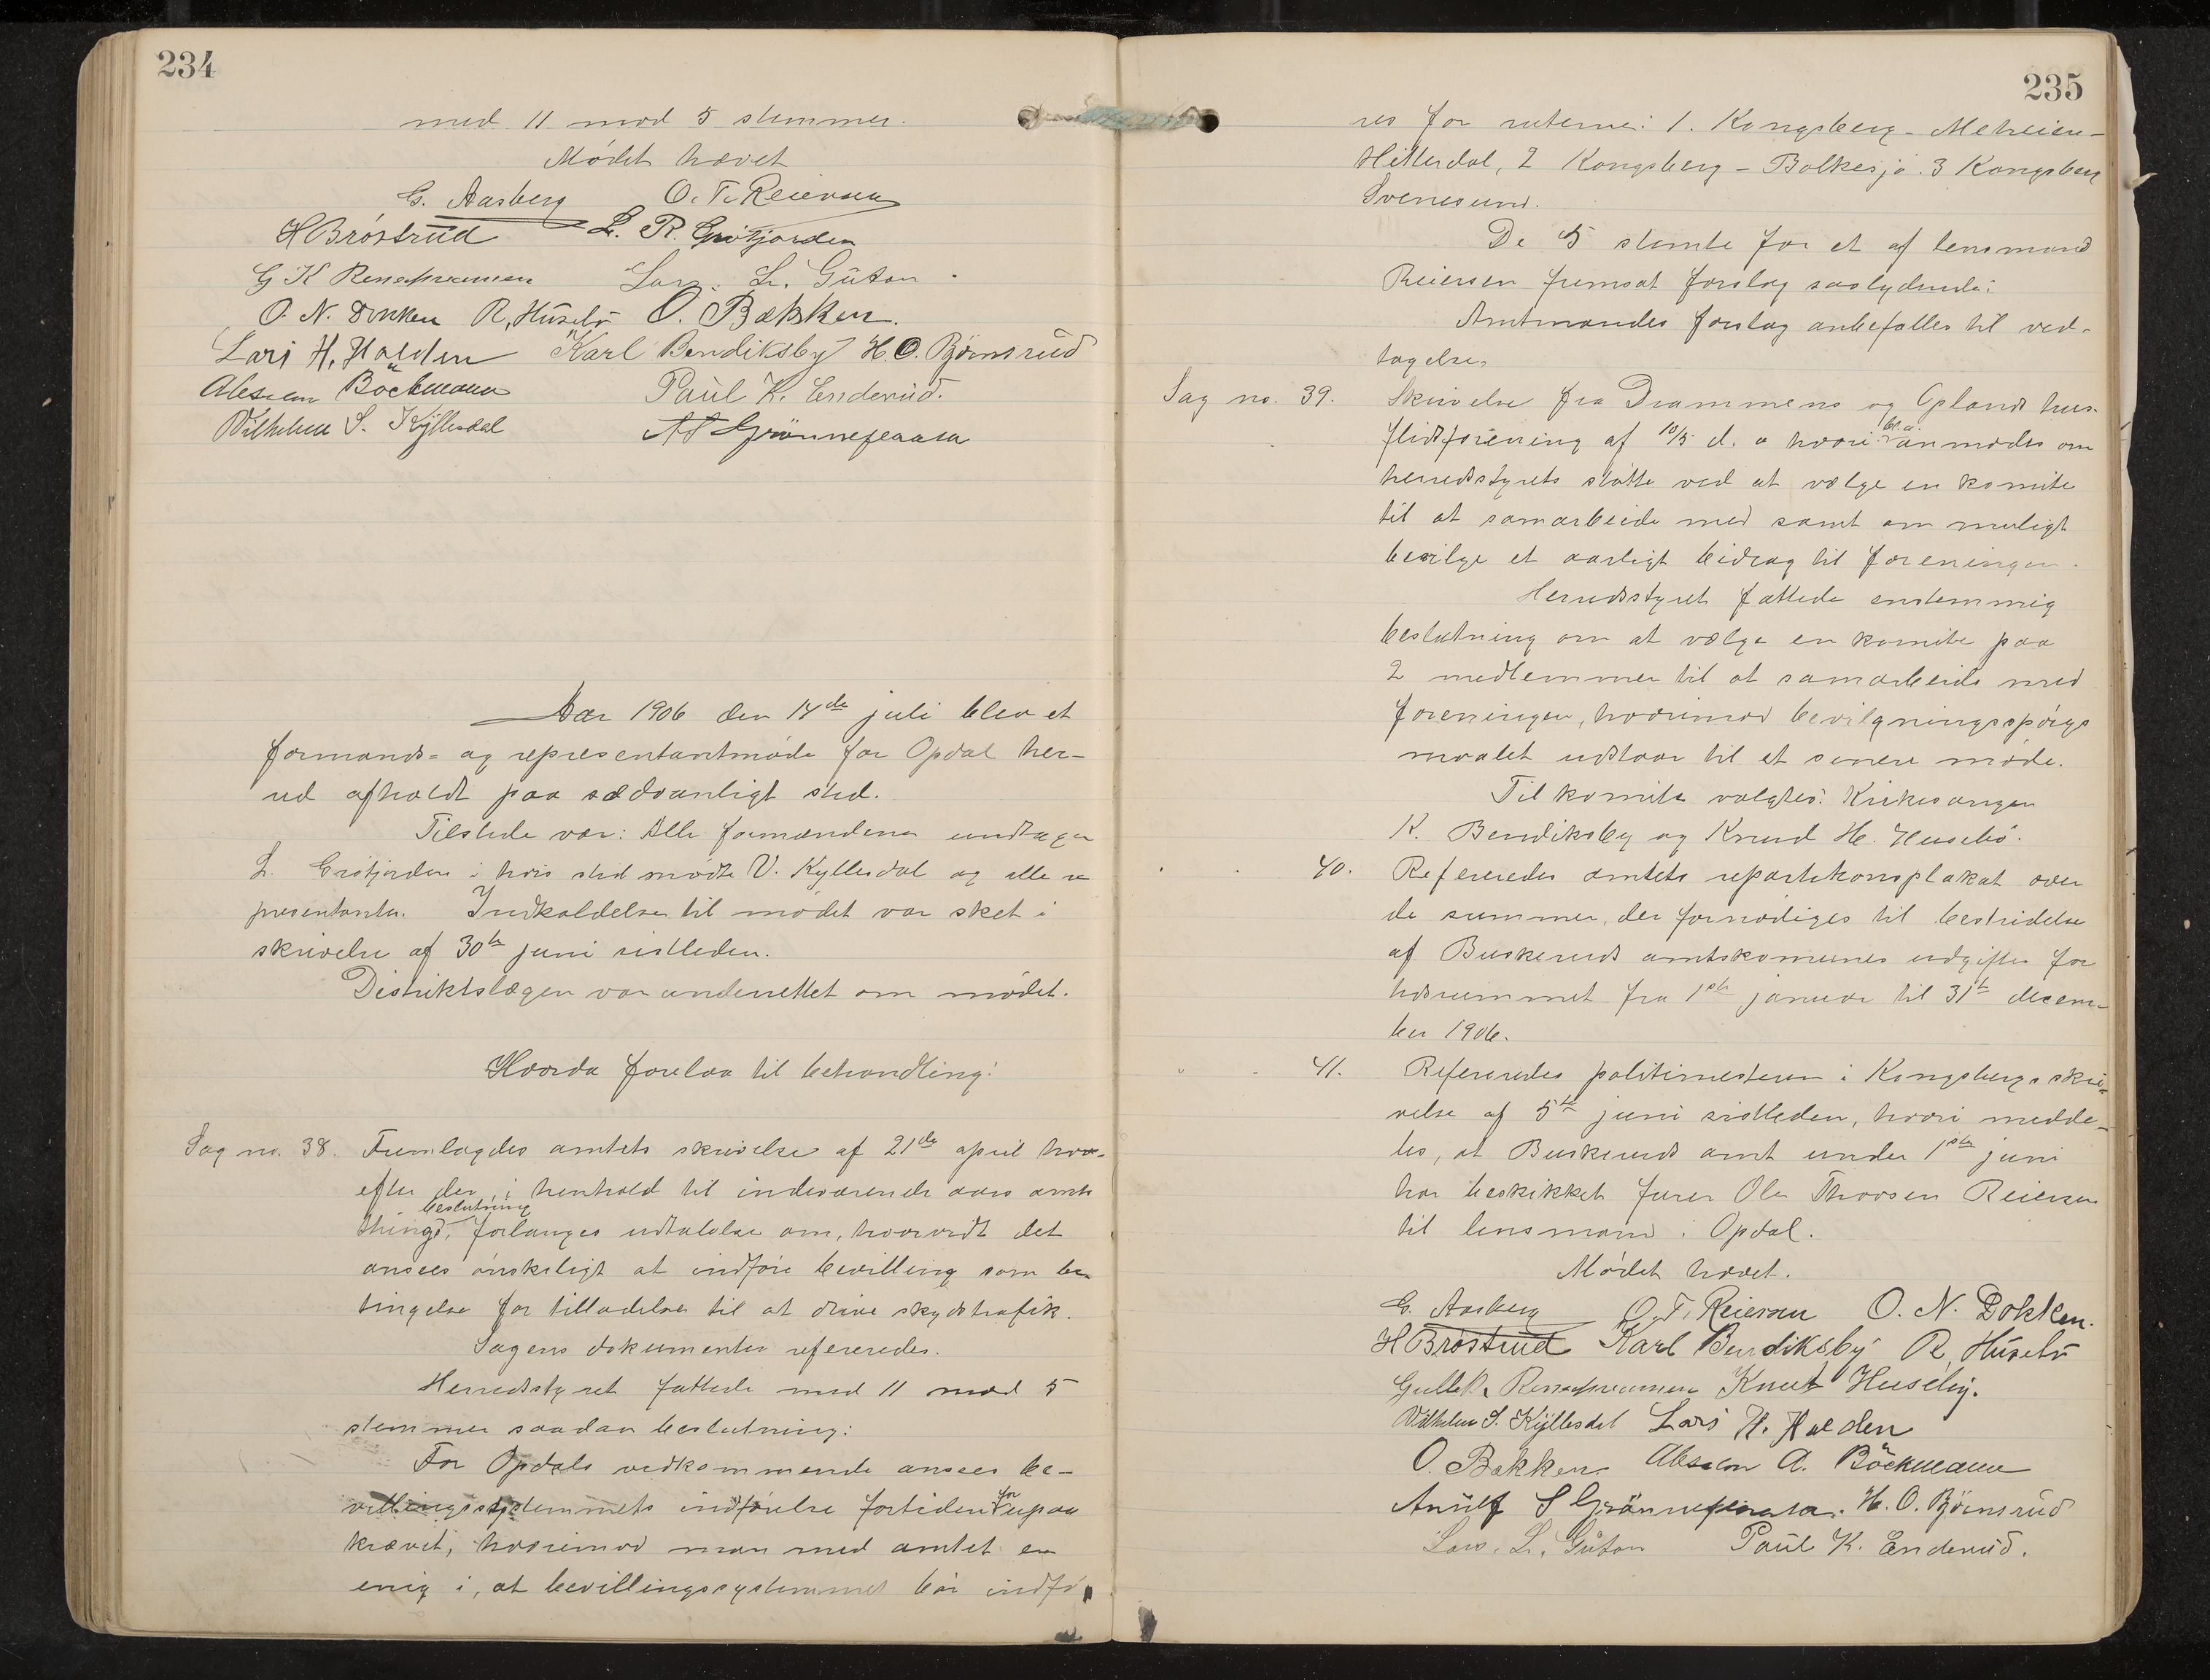 234
med 11 mod 5 stemmer.
Mødet hævet
G. Aasberg O. T. Reiersen
H Bröstrud L. R. Grøtjorden
G K Lars L. Gúton
O. N. Dokken R, Húsebö O. Bakken.
Lars H. Halden Karl Bendiksby H. O. Björnsrúd
Absalon Böckmann Paúl K. Enderúd.
Vilhelm S. Kÿllesdal A S Grönneflaata
Aar 1906 den 14de juli blev et
formands- og representantmøde for Opdal her-
red afholdt paa sædvanligt sted.
Tilstede var: Alle formændene undtagen
L. Grøtjorden i hvis sted mødte V. Kyllesdal og alle re
presentanter. Indkaldelse til mødet var sket i
skrivelse af 30te juni sistleden.
Distriktslægen var underrettet om mødet.
Hvorda forelaa til behandling:
Sag no. 38. Fremlagdes amtets skrivelse af 21de april hvor-
efter der, i henhold til indeværende aars amts
beslutning
thingś, forlanges udtalelse om, hvorvidt det
ansees ønskeligt at indføre bevilling som be
tingelse for tilladelse til at drive skydstrafik.
Sagens dokumenter refereredes.
Herredsstyret fattede med 11 mod 5
stemmer saadan beslutning:
For Opdals vedkommende ansees be-
villingssystemmets indførelse fortiden for upaa
krævet, hvorimod man med amtet er
enig i, at bevillingssystemmet bør indfø
235
res for ruterne: 1. Kongsberg - Meheien-
Hitterdal, 2 Kongsberg - Bolkesjø. 3 Kongsberg
Svenesund.
De 5 stemte for et af lensmand
Reiersen fremsat forslag saalydende:
Amtmandes forslag anbefalles til ved-
tagelse.
Sag no. 39. Skrivelse fra Drammens og Oplands hus-
flidsforening af 10/5 d. a hvori bl. a. anmodes om
herredsstyrets støtte ved at vælge en komite
til at samarbeide med samt om muligt
bevilge et aarligt bidrag til foreningen.
Herredsstyret fattede enstemmig
beslutning om at vælge en komite paa
2 medlemmer til at samarbeide med
foreningen, hvorimod bevilgningsspørgs
maalet udstaar til et senere møde.
Til komite valgtes: Kirkesanger
K. Bendiksby og Knud H. Husebø.
" " 40. Refereredes amtets repartitionsplakat over
de summer, der fornødiges til bestridelse
af Buskeruds amtskomunes udgifter for
tidsrummet fra 1ste januar til 31te decem-
ber 1906.
" " 41. Refereredes politimesteren i Kongsbergs skri-
velse af 5te juni sistleden, hvori medde-
les, at Buskeruds amt under 1ste juni
har beskikket furer Ole Thorsen Reiersen
til lensmand i Opdal.
Mødet hævet.
G. Aasberg O. T. Reiersen O. N. Dokken.
H Bröstrud Karl Bendiksby R. Húsebö
Gullek Knut Huseby.
Vilhelm S. Kÿllesdal Lars H. Halden
O. Bakken Absalon A. Böckmann
Anúlf S Grönneflaata. H. O. Björnsrúd
Lars. L. Gúton Paúl K. Enderúd.